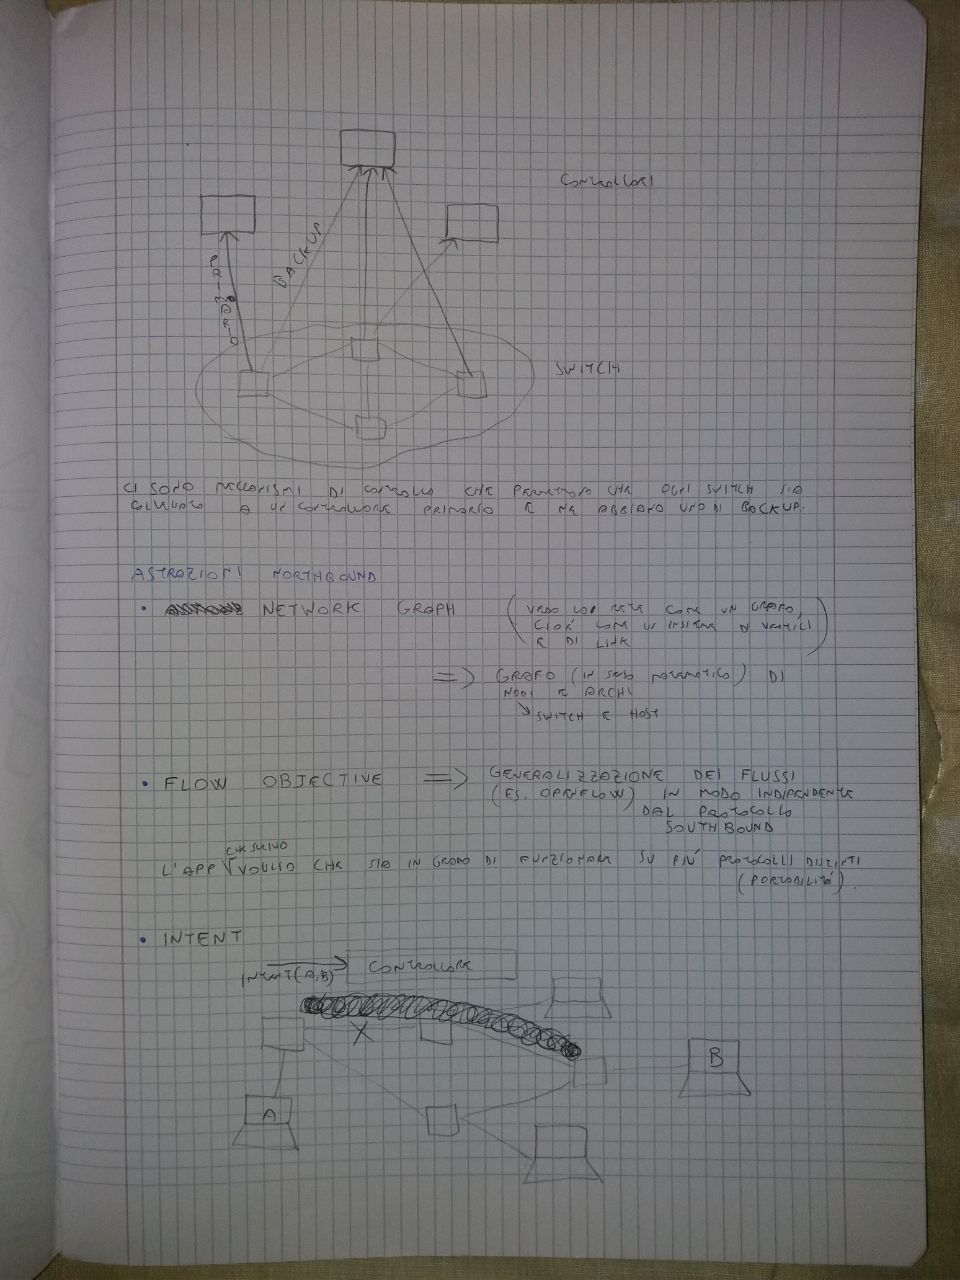 CONTROLLORI
PRIMARIO
BACKUP
SWITCH
CI SONO MECCANISMI DI CONTROLLO CHE PERMETTONO CHE OGNI SWITCH SIA
A UN CONTROLLORE PRIMARIO E NE ABBIANO UNO DI BACKUP.
ASTRAZIONI NORTHBOUND
• NETWORK GRAPH (VEDO LA RETE COME UN GRAFO,
CIOÈ COME UN INSIEME DI VERTICI
E DI LINK)
=> GRAFO (IN SENSO MATEMATICO) DI
NODI E ARCHI
↘ SWITCH E HOST
• FLOW OBJECTIVE => GENERALIZZAZIONE DEI FLUSSI
(ES. OPENFLOW) IN MODO INDIPENDENTE
DAL PROTOCOLLO
SOUTHBOUND
CHE SCRIVO
L'APP V VOGLIO CHE SIA IN GRADO DI FUNZIONARE SU PIÙ PROTOCOLLI DISTINTI
(PORTABILITÁ).
• INTENT
INTENT(A,B) CONTROLLORE
X
B
A